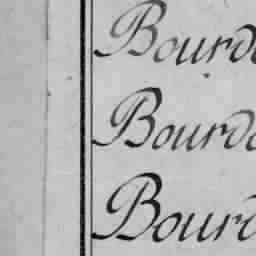 Bourdo
Bourdo
Bourd